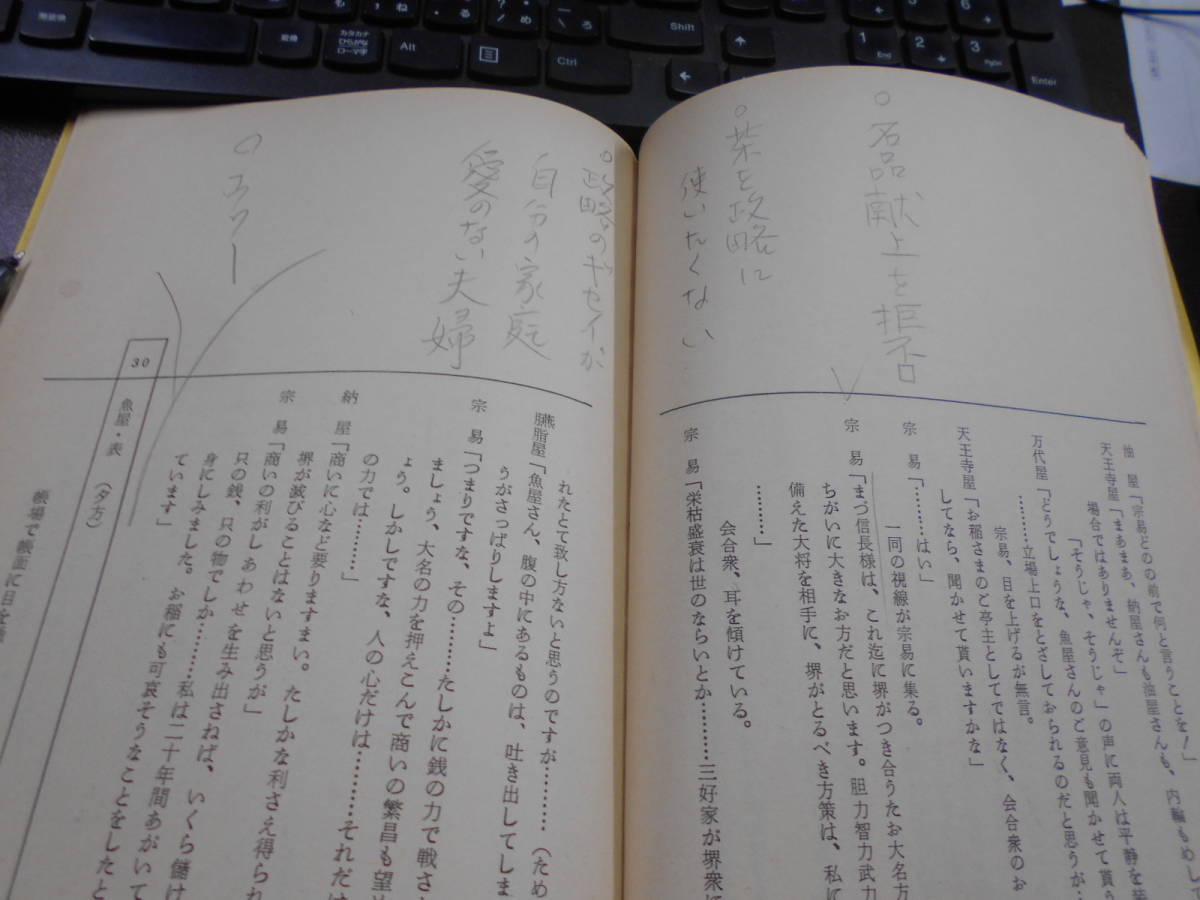 ○名品献上を拒否
○茶を政略に
使いたくない
油　屋「宗易どのの前で何と言うことを！」
天王寺屋「まあまあ、納屋さんも油屋さんも、内輪もめして
場合ではありませんぞ」
「そうじゃ、そうじゃ」の声に両人は平静を装
万代屋「どうでしょうな、魚屋さんのご意見も聞かせて貰う
………立場上口をとざしておられるのだと思うが
宗易、目を上げるが無言。
天王寺屋「お稲さまのご亭主としてではなく、会合衆のお
してなら、聞かせて貰いますかな」
宗　易「………はい」
一同の視線が宗易に集る。
宗　易「まづ信長様は、これ迄に堺がつき合うたお大名方
ちがいに大きなお方だと思います。胆力智力武力
備えた大将を相手に、堺がとるべき方策は、私に
………」
会合衆、耳を傾けている。
宗　易「栄枯盛衰は世のならいとか………三好家が堺衆に
○政略のギセイが
自分の家庭
愛のない夫婦
れたとて致し方ないと思うのですが………（ため
臙脂屋「魚屋さん、腹の中にあるものは、吐き出してしま
うがさっぱりしますよ」
宗　易「つまりですな、その………たしかに銭の力で戦さ
ましょう、大名の力を押えこんで商いの繁昌も望め
ょう。しかしですな、人の心だけは………それだけ
の力では…………」
納　屋「商いに心など要りますまい。たしかな利さえ得られ
堺が滅びることはないと思うが」
宗　易「商いの利がしあわせを生み出さねば、いくら儲け
只の銭、只の物でしか………私は二十年間あがいて
身にしみました。お稲にも可哀そうなことをしたと
ています」
30
魚屋・表　（夕方）
帳場で帳面に目を
変換
カタカナ
ひらがな
ローマ字
Alt
Ctrl
Shift
1
End
2
3
PgDn
Enter